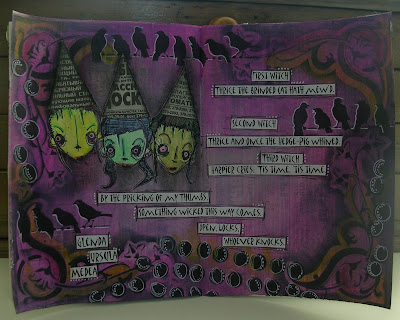 FIRST WITCH
THRICE THE BRINDED CAT HATH MEW'D.
SECOND WITCH
THRICE AND ONCE THE HEDGE-PIG WHINED.
THIRD WITCH
HARPIER CRIES: 'TIS TIME, 'TIS TIME
BY THE PRICKING OF MY THUMBS,
SOMETHING WICKED THIS WAY COMES.
OPEN, LOCKS,
WHOEVER KNOCKS.
GLENDA
URSULA
MEDEA